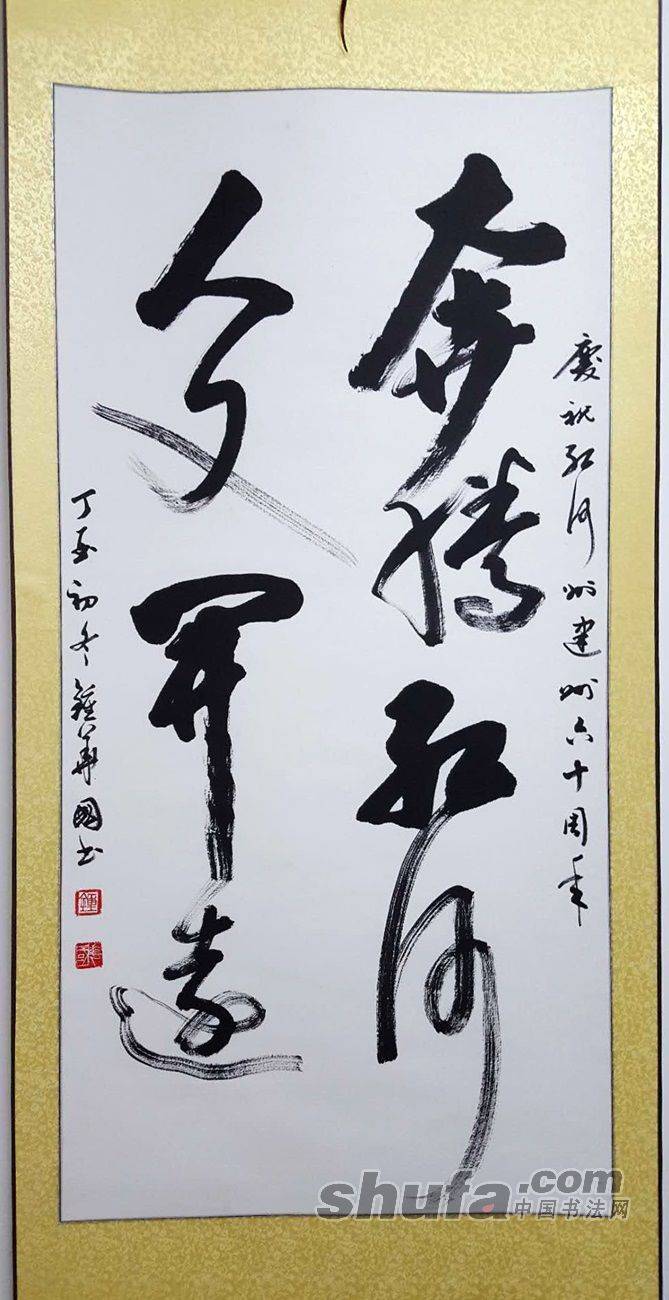 慶祝紅河州建州六十周年
奔騰紅河
人文開遠
丁酉初冬鍾華國書
鍾
shufa.com
中国书法网